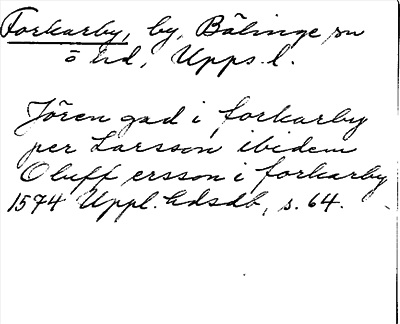 Forkarby, by, Bälinge sn
ö hd, Upps. l.
Jören gad i forkarby
per Larsson ibidem
Oluff ersson i forkarby
1574 Uppl. hdsdb, s. 64.